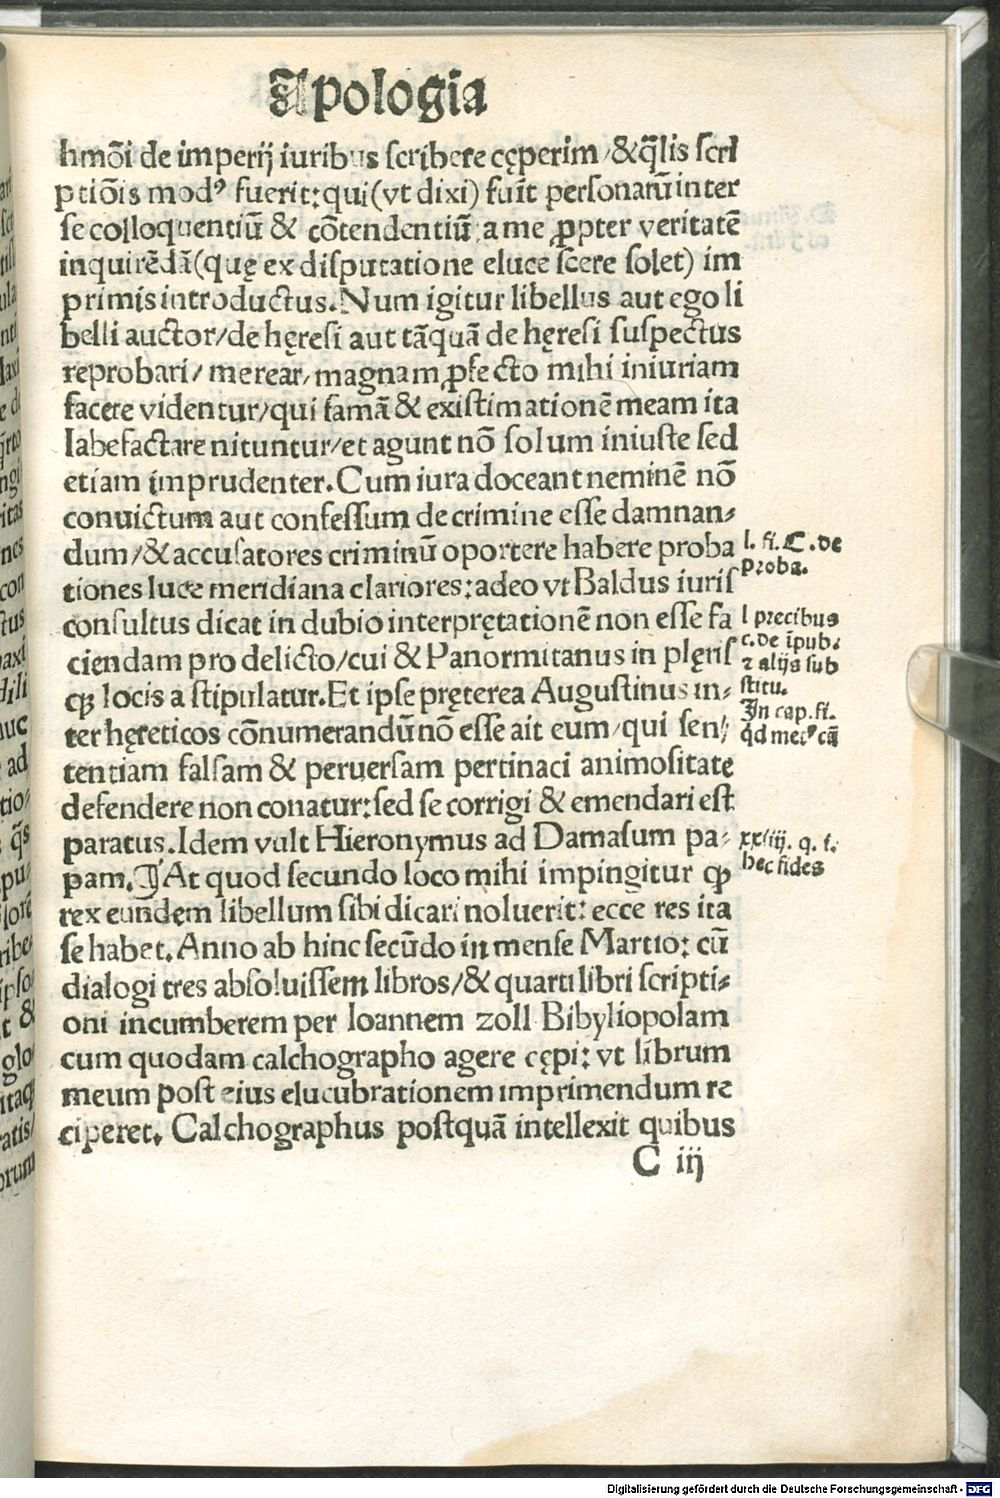 Apologia
hmōi de imperij iuribus scribere cęperim/&q̄lis scri
ptiōis modꝰ fuerit:qui(vt dixi) fuit personarū inter
se colloquentiū & cōtendentiū a me ꝓpter veritatē
inquirēdā(quę ex disputatione elucescere solet) im
primis introductus.Num igitur libellus aut ego li
belli auctor/de hęresi aut tāquā de hęresi suspectus
reprobari/ merear/ magnam ꝓfecto mihi iniuriam
facere videntur/qui famā & existimationē meam ita
labefactare nituntur/et agunt nō solum iniuste sed
etiam imprudenter.Cum iura doceant neminē nō
conuictum aut confessum de crimine esse damnan⸗
dum/& accusatores criminū oportere habere proba
tiones luce meridiana clariores:adeo vt Baldus iuris
consultus dicat in dubio interprętationē non esse fa
ciendam pro delicto/cui & Panormitanus in plęris
cꝗ locis a stipulatur.Et ipse pręterea Augustinus in⸗
ter hęreticos cōnumerandū nō esse ait eum/qui sen⸗
tentiam falsam & peruersam pertinaci animositate
defendere non conatur:sed se corrigi & emendari est
paratus.Idem vult Hieronymus ad Damasum pa⸗
pam.¶At quod secundo loco mihi impingitur ꝙ
rex eundem libellum sibi dicari noluerit: ecce res ita
se habet.Anno ab hinc secūdo in mense Martio: cū
dialogi tres absoluissem libros/& quarti libri scripti⸗
oni incumberem per Ioannem zoll Bibyliopolam
cum quodam calchographo agere cępi: vt librum
meum post eius elucubrationem imprimendum re
ciperet. Calchographus postquā intellexit quibus
C iij
l. fi. C. de
proba.
l precibus
c. de īpub.
⁊ alijs sub
stitu.
In cap. fi.
qd metꝰ cā
xxiiij. q. i.
hec fides
Digitalisierung gefördert durch die Deutsche Forschungsgemeinschaft - DFG